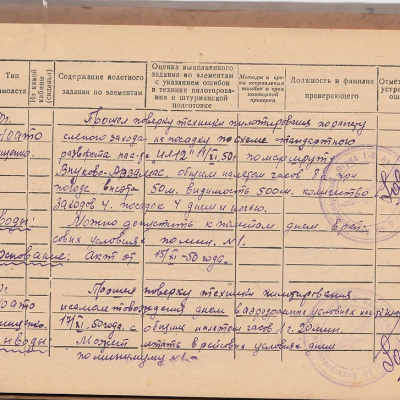 Тип
самолета
(из какой
кабины
(сиденья)
Содержание полетного
задания по элементам
Оценка выполненного
задания по элементам
с указанием ошибок
в технике пилотирова-
ния и штурманской
подготовке
Методы и сро-
ки исправления
ошибок и срок
повторной
проверки
Должность и фамилия
проверяющего
Отмет
устра
оши
Прошел поверку техники пилотирования по расчету
слепого захода на посадку по схеме стандартного
разворота на с-те "ИЛ-12" 11/XI.50г по маршруту
Внуково-Арзамас, общим налетом часов 8 ч. при
погоде высота 50м. видимость 500м. количество
заходов 4. посадок 4 днем и ночью.
воды: Можно допустить к полетам днем в рей-
совых условиях по мин. N1.
основание: Акт от 15/XI-50 года.
Прошел поверку техники пилотирования
днем в аэродромных условиях
17/XI.50 года, с общим налетом часов 1 г. 20 мин.
выводы: Может летать в рейсовых условиях днем
по минимуму N1.-